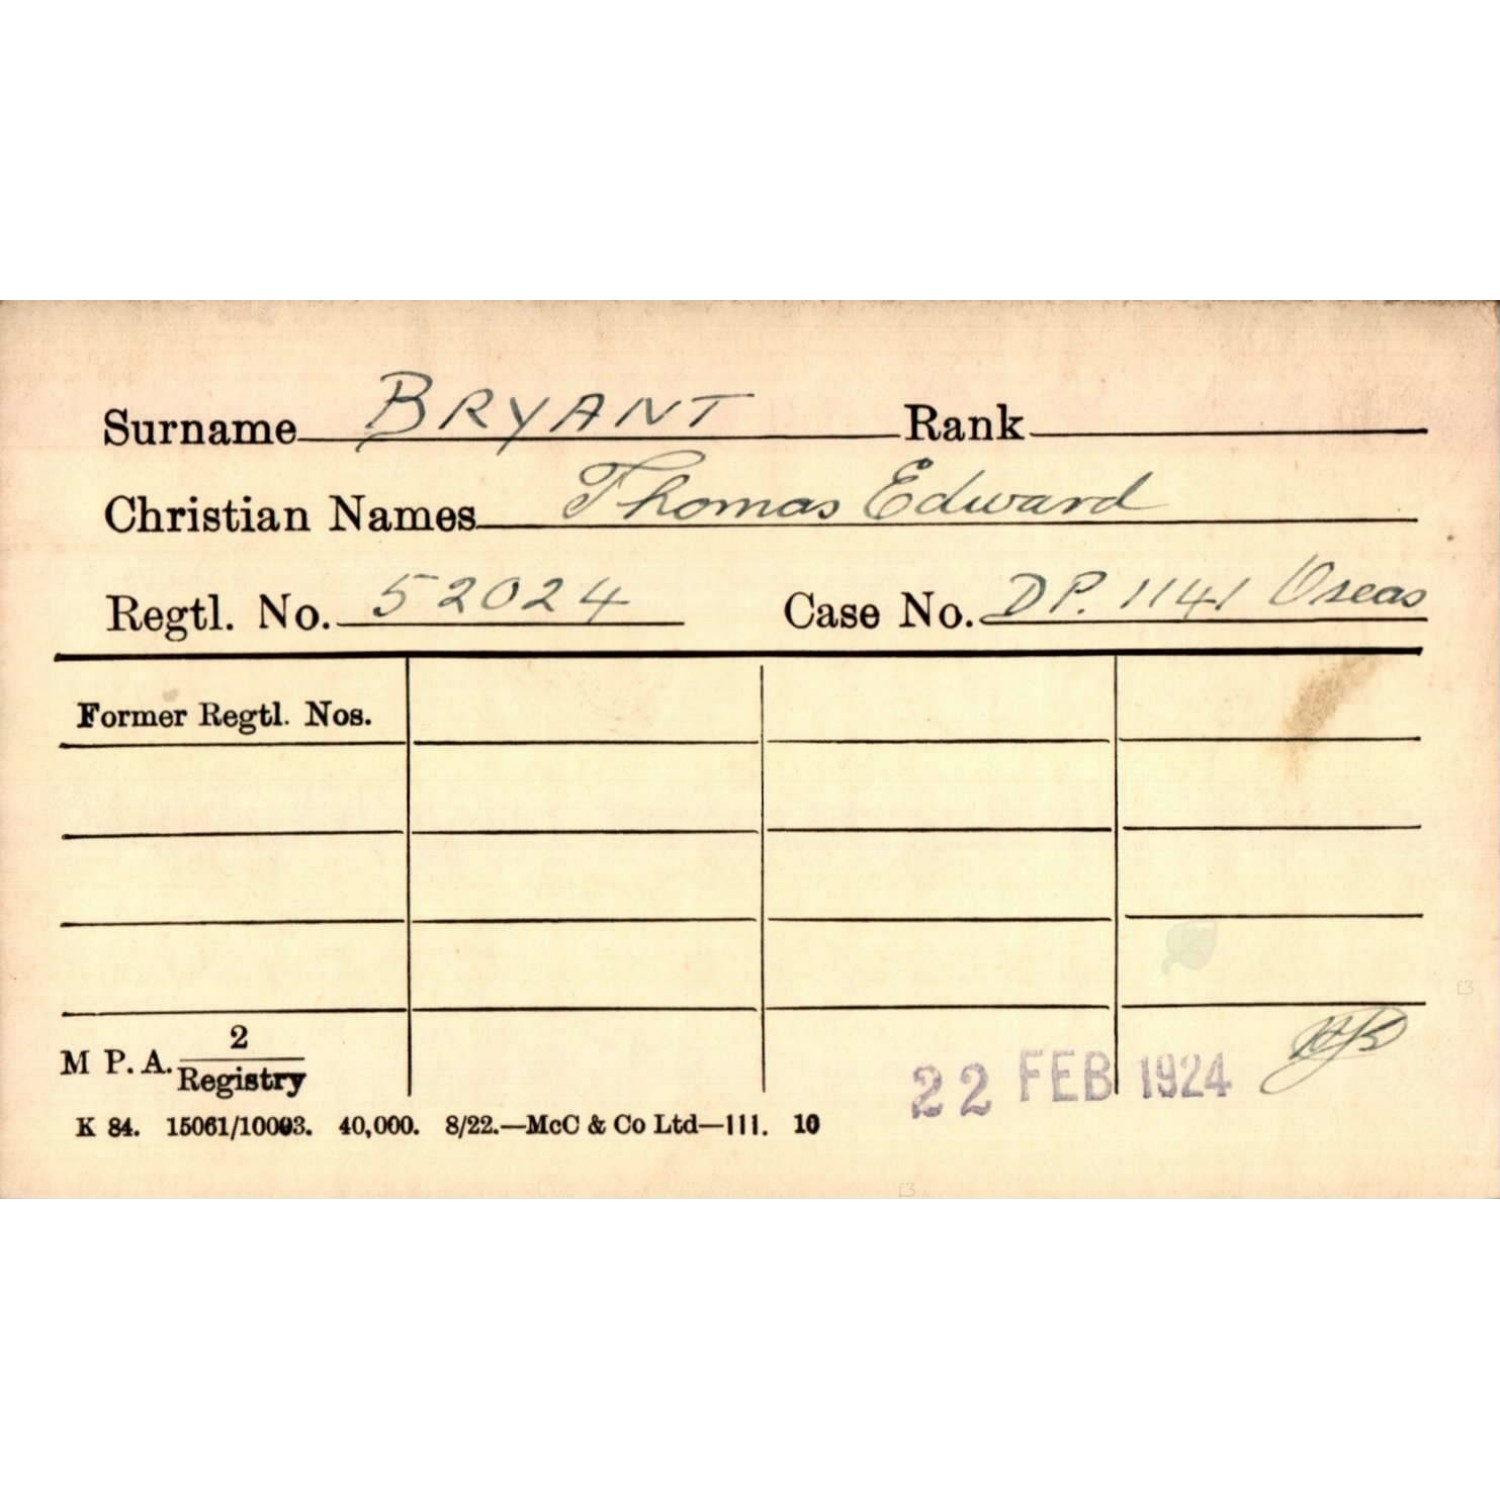 Surname BRYANT Rank
Christian Names Thomas Edward
Regtl. No. 52024 Case No. DP. 1141 O'seas
Former Regtl. Nos.
M P. A. 2
Registry
22 FEB 1924
K 84. 15061/10003. 40,000. 8/22.—McC & Co Ltd—111. 10